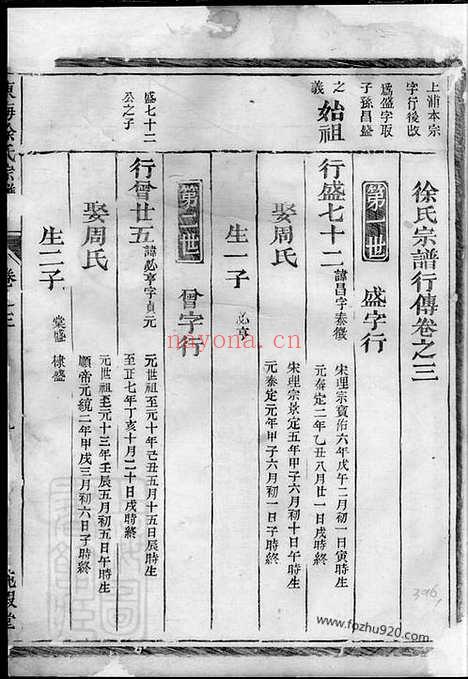 徐氏宗譜行傳卷之三
第一世 盛字行
行盛七十二 諱昌字泰徵
宋理宗寶祐六年戊午二月初一日寅時生
元泰定二年乙丑八月廿一日戌時終
娶周氏
宋理宗景定五年甲子六月初十日戌時生
元泰定元年甲子六月初一日子時終
生一子 必亨
第二世 曾字行
行曾廿五 諱必亨字貞元
元世祖至元十年己丑五月十五日辰時生
至正七年丁亥十月二十日戌時終
娶周氏
元世祖至元十三年壬辰五月初五日午時生
順帝元統二年甲戌三月初六日子時終
生二子 棠盛 棣盛
上浦本宗
字行後改
爲盛字取
子孫昌盛
之 始祖
義
盛七十二
公之子
東海徐氏宗譜
卷之三
nayona.cn
396,
www.fozhu920.com